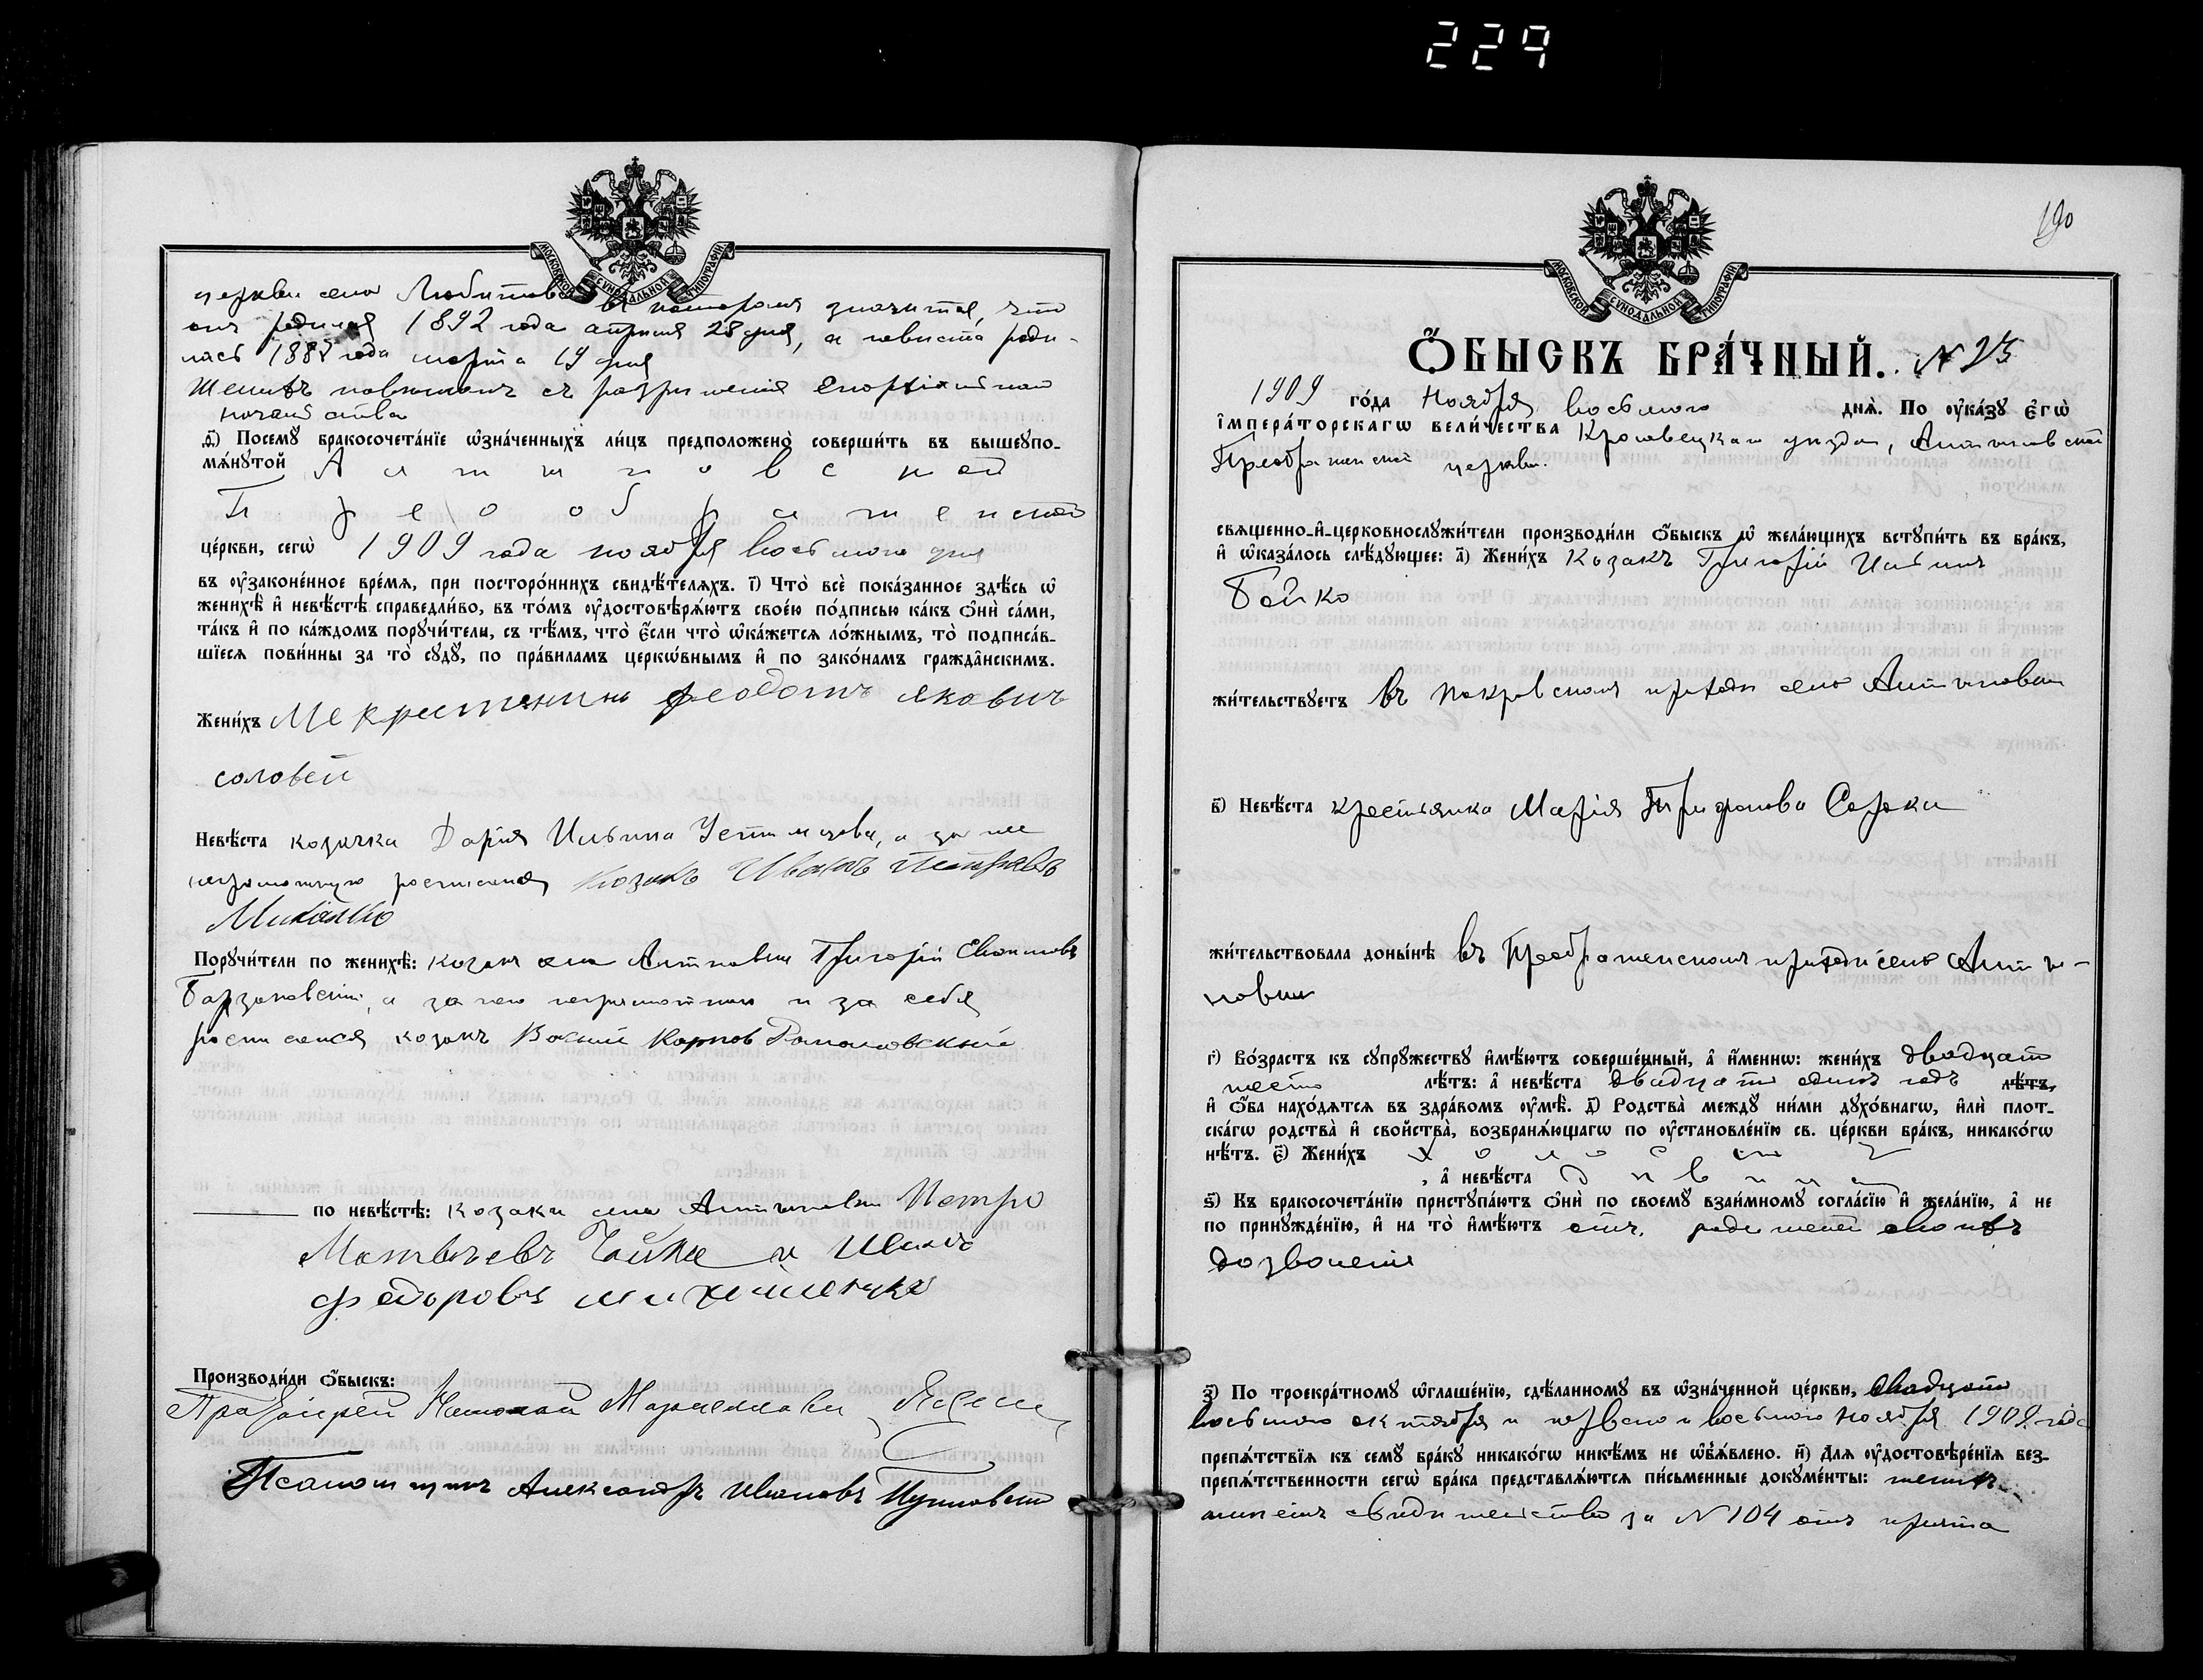 229
МОСКОВСКОЙ СѴНОДАЛЬНОЙ ТИПОГРАФІИ
церкви села Любитова въ котором значится, что
он родился 1892 года апреля 28 дня, а невеста роди-
лась 1882 года марта 19 дня
Жених повенчан съ разрешения Епархиального
начальства
ѳ҃) Посемꙋ̀ бракосочета́нїе ѡ҆зна́ченныхъ ли́цъ предположено̀ соверши́ть въ вышеꙋпо-
мѧ́нꙋтой Алтыновской
Преображенской
це́ркви, сегѡ̀ 1909 года ноября восьмого дня
въ ᲂу҆зако́ненное вре́мѧ, при посторо́ннихъ свидѣ́телѧхъ. і҃) Что̀ всѐ пока́занное здѣ́сь ѡ҆
женихѣ̀ и҆ невѣ́стѣ справедли́во, въ то́мъ ᲂу҆достовѣрѧ́ютъ свое́ю по́дписью ка́къ ѻ҆нѝ са́ми,
та́къ и҆ по ка́ждомъ порꙋчи́тели, съ тѣ́мъ, что̀ є҆́сли что̀ ѡ҆ка́жетсѧ ло́жнымъ, то̀ подписа́в-
шїесѧ пови́нны за то̀ сꙋдꙋ̀, по пра́виламъ церкѡ́внымъ и҆ по зако́намъ гражда́нскимъ.
Жени́хъ Мекрестенинъ феодотъ яковичъ
соловей
Невѣ́ста козачка Дарiя Ильина Устимцова, а за нее
неграмотную росписался Козакъ Иванъ Петровъ
Михайло
Порꙋчи́тели по женихѣ̀: козак села Алтыновки Григорiй Евхимовъ
Барзаковский, а за него неграмотного и за себя
росписался козакъ Василий Карпов Романовский
по невѣ́стѣ: козаки села Алтыновки Петро
Матвѣевъ Чайка и Иванъ
федоровъ михиленко
Производи́ли ѻ҆́быскъ:
Протоiерей Николай
Псаломщикъ Александръ Ивановъ
190
МОСКОВСКОЙ СѴНОДАЛЬНОЙ ТИПОГРАФІИ
Ѻ҆́БЫСКЪ БРА́ЧНЫЙ. N 25
1909 го́да Ноября восьмого днѧ̀. По ᲂу҆ка́зꙋ є҆гѡ̀
і҆мпера́торскагѡ вели́чества Кролевецкаго уезда, Алтыновской
Преображенской церкви.
свѧще́нно-и҆-церковнослꙋжи́тели производи́ли ѻ҆́быскъ ѡ҆ жела́ющихъ встꙋпи́ть въ бра́къ,
и҆ ѡ҆каза́лось слѣ́дꙋющее: а҃) Жени́хъ Козакъ Григорiй Ильин
Бойко
жи́тельствꙋетъ въ Покровском приходе села Алтыновки
в҃) Невѣ́ста крестьянка Марiя Трифонова Сорока
жи́тельствовала доны́нѣ въ Преображенском приходе села Алты-
новки
г҃) Во́зрастъ къ сꙋпрꙋ́жествꙋ и҆мѣ́ютъ соверше́нный, а҆ и҆́меннѡ: жени́хъ двадцать
шесть лѣ́тъ: а҆ невѣ́ста двадцать одинъ годъ лѣ́тъ,
и҆ ѻ҆́ба нахо́дѧтсѧ въ здра́вомъ ᲂу҆мѣ̀. д҃) Родства̀ междꙋ̀ ни́ми дꙋхо́внагѡ, и҆лѝ плот-
ска́гѡ родства̀ и҆ сво́йства̀, возбранѧ́ющагѡ по ᲂу҆становле́нїю св. це́ркви бра́къ, никако́гѡ
нѣ́тъ. є҃) Жени́хъ холост
, а҆ невѣ́ста девица
ѕ҃) Къ бракосочета́нїю пристꙋпа́ютъ ѻ҆нѝ по своемꙋ̀ взаи́мномꙋ согла́сїю и҆ жела́нїю, а҆ не
по принꙋжде́нїю, и҆ на то̀ и҆мѣ́ютъ отъ родителей своихъ
дозволенiя
з҃) По троекра́тномꙋ ѡ҆глаше́нїю, сдѣ́ланномꙋ въ ѡ҆зна́ченной це́ркви, двадцать
восьмого октября и первого и восьмого ноября 1909 года
препѧ́тствїѧ къ семꙋ̀ бра́кꙋ никако́гѡ никѣ́мъ не ѡ҆б̾ѧ́влено. и҃) Длѧ ᲂу҆достовѣре́нїѧ без-
препѧ́тственности сегѡ̀ бра́ка представлѧ́ютсѧ пи́сьменные докꙋме́нты: жених
свидетельство за N 104 отъ причта